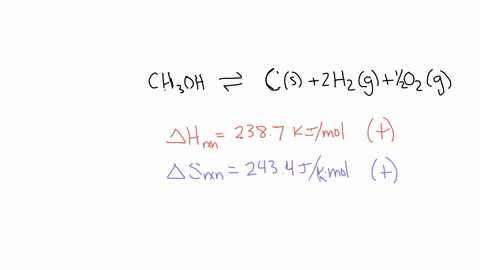 CH₃OH ⇌ C(s) + 2H₂(g) + ½O₂(g)
ΔHrxn = 238.7 KJ/mol (+)
ΔSrxn = 243.4 J/K·mol (+)